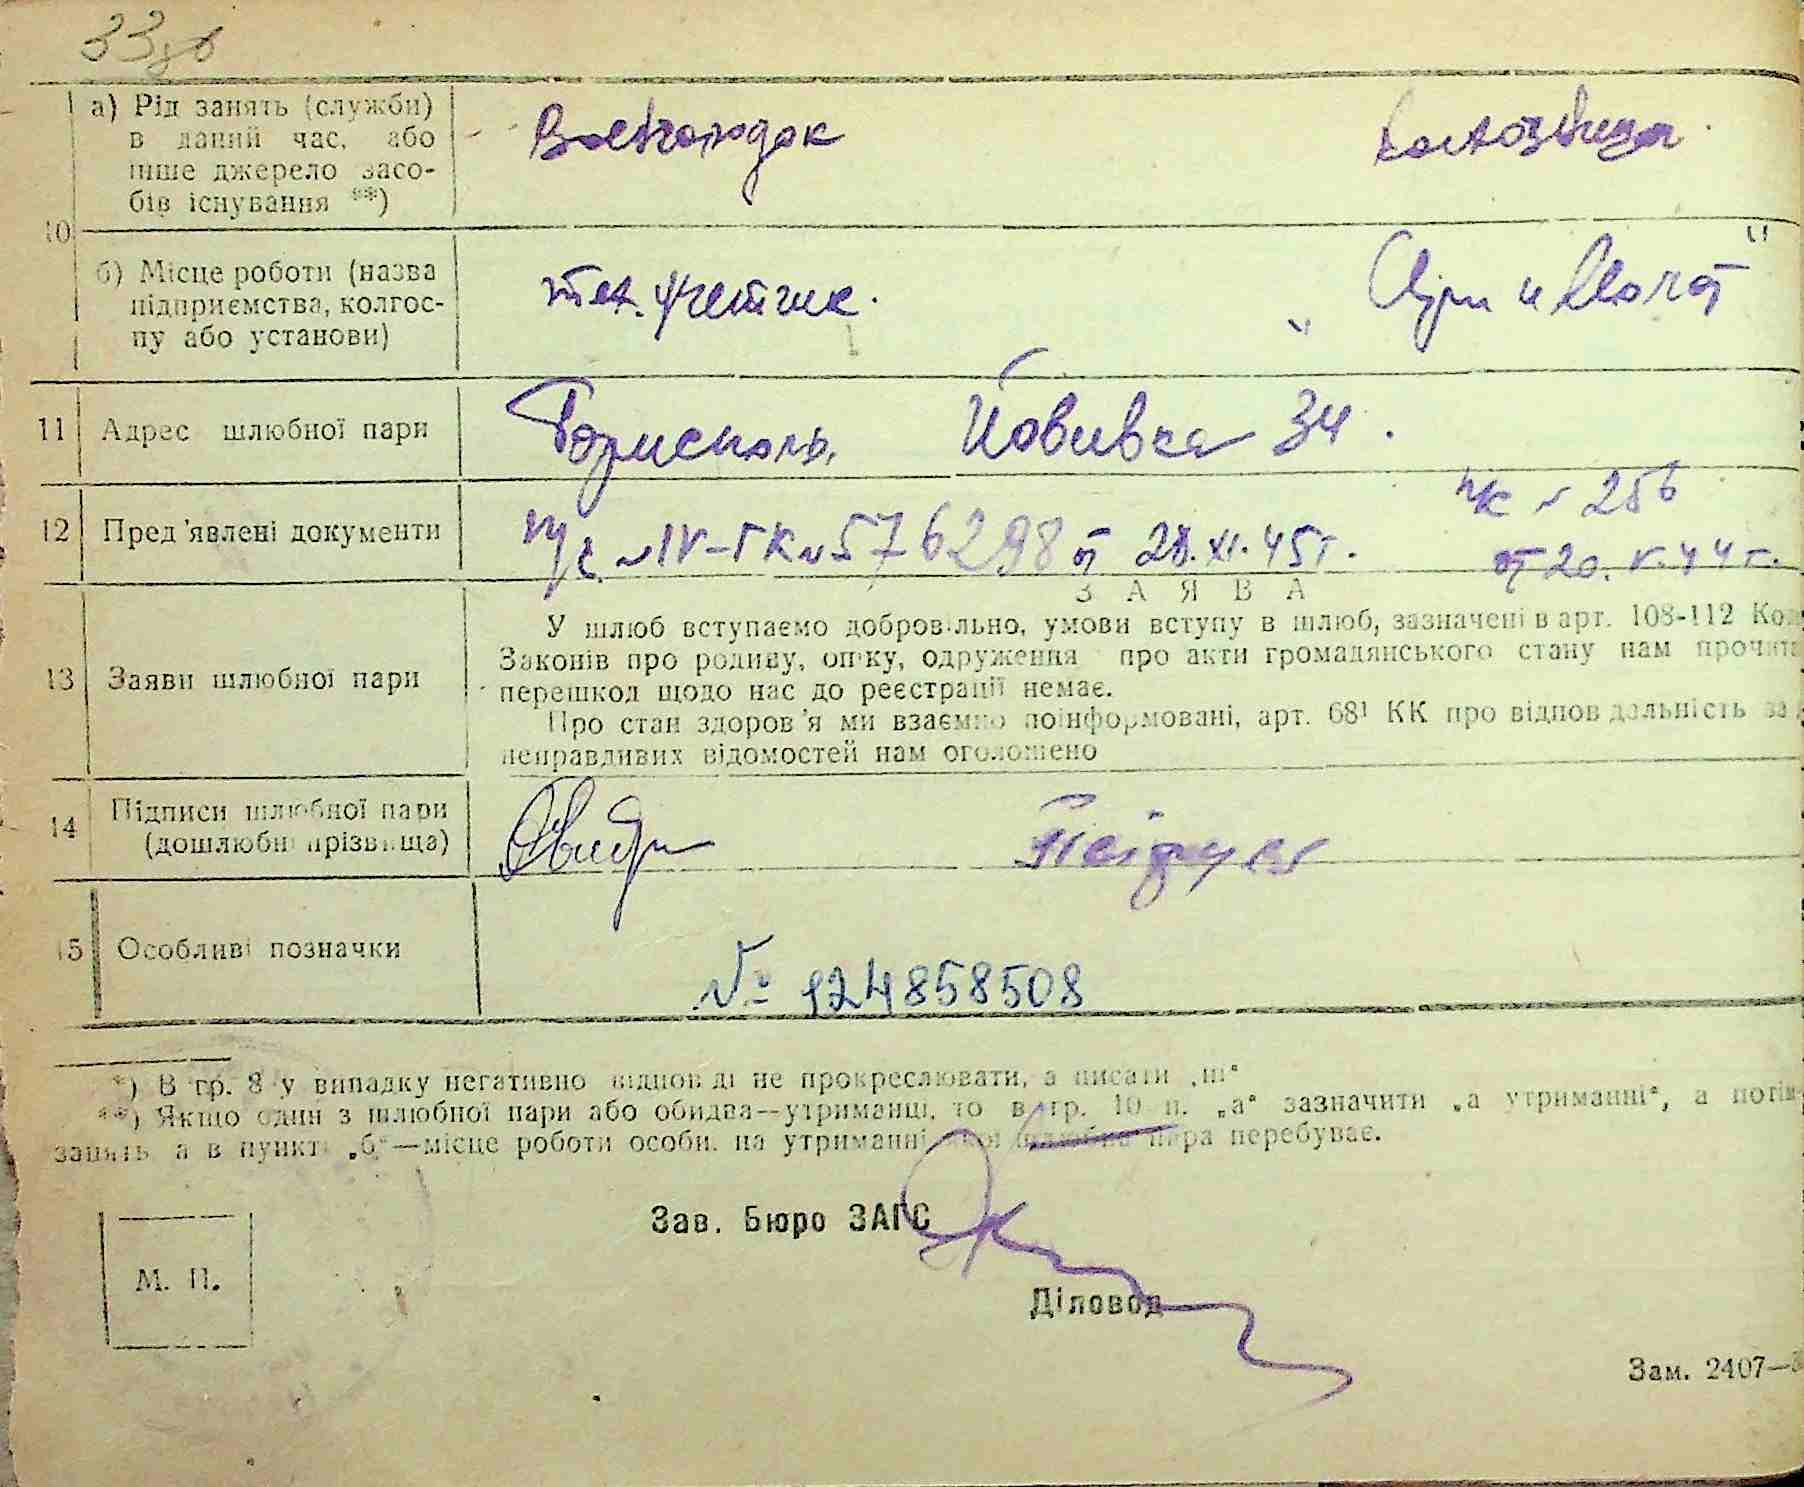 33
а) Рід занять (служби)
в даний час, або
інше джерело засо-
бів існування **)
Военгородок
колхозница
10
б) Місце роботи (назва
підприємства, колгос-
пу або установи)
тех. учетчик.
"Серп и Молот"
11 Адрес шлюбної пари
Борисполь, 34.
12 Пред'явлені документи
IV-ГК № 576298 от 28.XI.45г.
№ 256
от 20.V.44г.
ЗАЯВА
13 Заяви шлюбної пари
У шлюб вступаємо добровільно, умови вступу в шлюб, зазначені в арт. 108-112
Законів про родину, опіку, одруження про акти громадянського стану нам
перешкод щодо нас до реєстрації немає.
Про стан здоров'я ми взаємно поінформовані, арт. 68¹ КК про відповідальність за
неправдивих відомостей нам оголошено
14 Підписи шлюбної пари
(дошлюбні прізвища)
15 Особливі позначки
№ 124858508
*) В гр. 8 у випадку негативної відповіді не прокреслювати, а писати „ні“
**) Якщо один з шлюбної пари або обидва—утриманці, то в гр. 10 п. „а“ зазначити „а утриманні“, а
занять а в пункті „б“—місце роботи особи, на утриманні якої шлюбна пара перебуває.
Зав. Бюро ЗАГС
М. П.
Діловод
Зам. 2407—